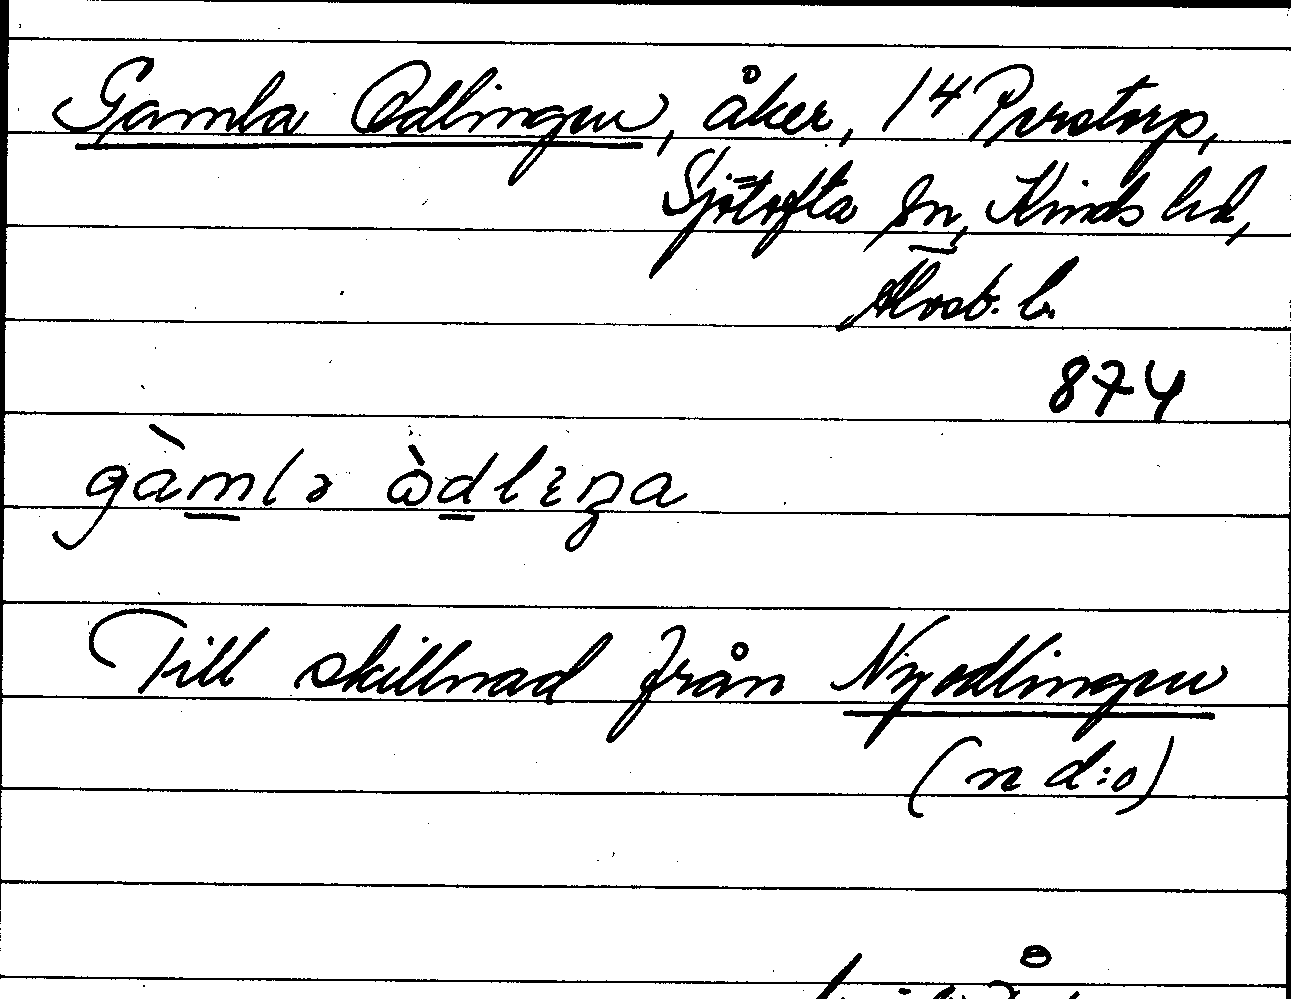 Gamla Odlingen, åker, 14 Prostorp,
Sjötofta sn, Kinds hd,
Älvsb. l.
874
gàmlə òdlɛŋa
Till skillnad från Nyodlingen
(n d:o)